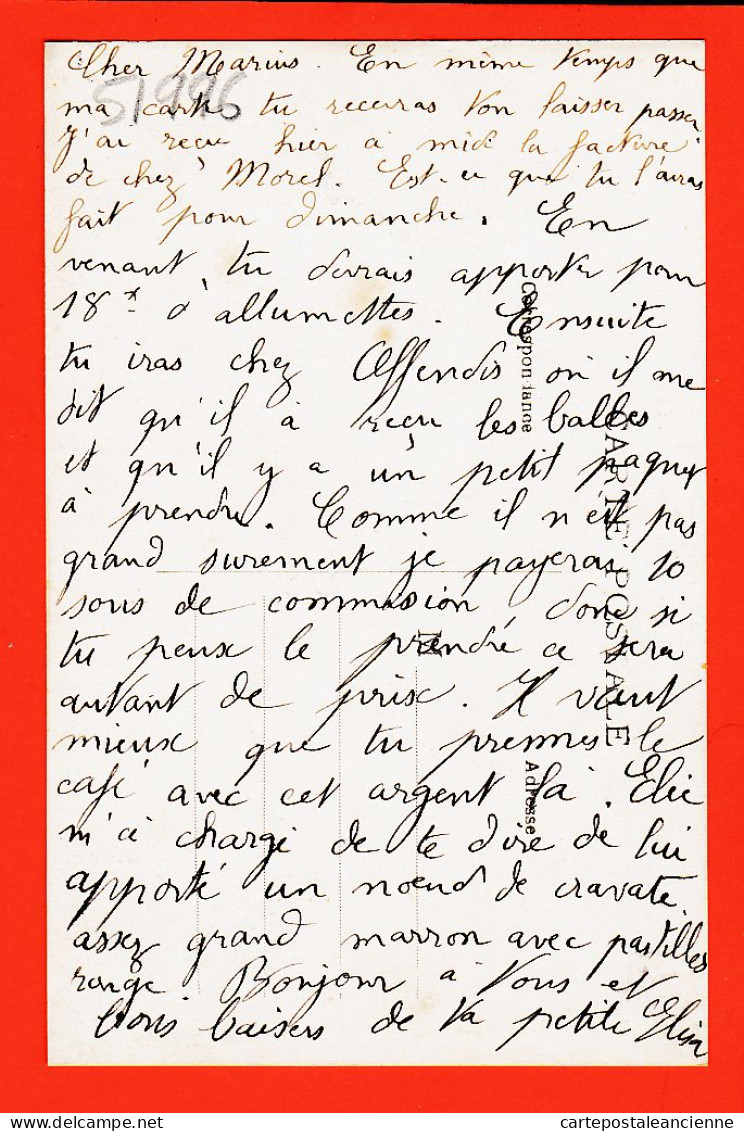 Cher Marius. En même temps que
ma carte tu recevras ton laisser passer
J'ai reçu hier à midi la facture
de chez Morel. Est-ce que tu l'auras
fait pour dimanche. En
venant, tu devrais apporter pour
18 d'allumettes. Ensuite
tu iras chez Affendis où il me
dit qu'il à reçu les balles
et qu'il y a un petit paquet
à prendre. Comme il n'est pas
grand surement je payerai 10
sous de commision donc si
tu peux le prendre ce sera
autant de prix. Il vaut
mieux que tu prennes le
café avec cet argent là. Elie
m'a chargé de te dire de lui
apporté un noeud de cravate
assez grand marron avec pastilles
rouge. Bonjour à tous et
bons baisers de ta petite Elisa
51996
Correspondance
CARTE POSTALE
Adresse
delcampe.net
cartepostaleancienne